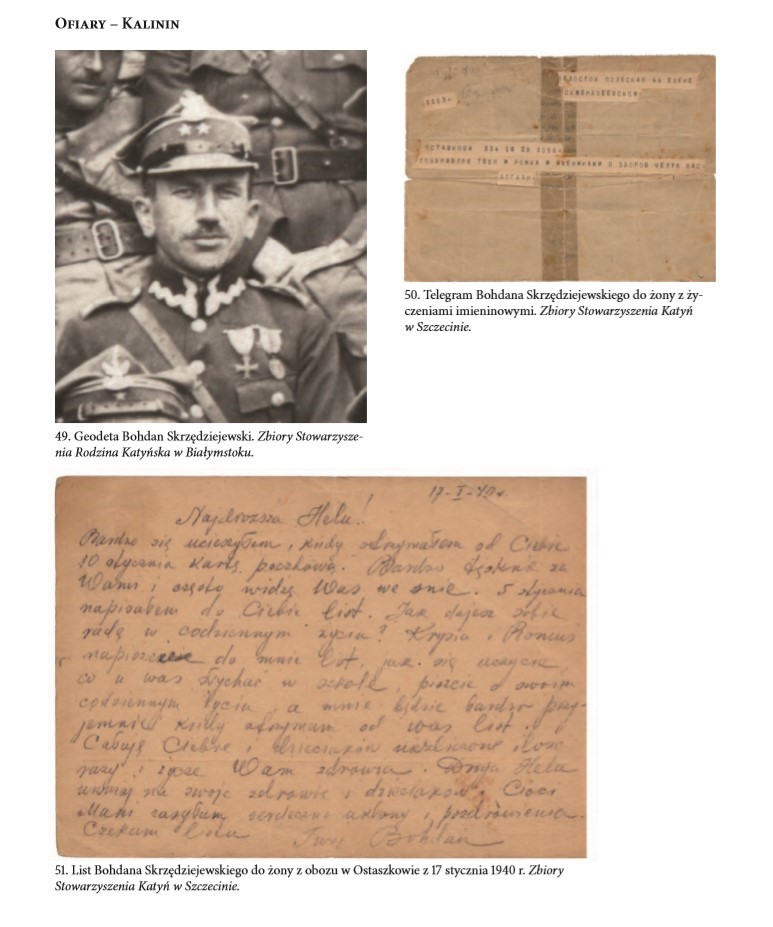 Ofiary – Kalinin
50. Telegram Bohdana Skrzędziejewskiego do żony z ży-
czeniami imieninowymi. Zbiory Stowarzyszenia Katyń
w Szczecinie.
49. Geodeta Bohdan Skrzędziejewski. Zbiory Stowarzysze-
nia Rodzina Katyńska w Białymstoku.
17-I-40 r.
Najdroższa Helu!
Bardzo się ucieszyłem, kiedy otrzymałem od Ciebie
10 stycznia kartę pocztową. Bardzo tęsknię za
Wami i często widzę Was we śnie. 5 stycznia
napisałem do Ciebie list. Jak dajesz sobie
radę w codziennym życiu? Krysia i Romuś
do mnie list, jak się uczycie,
co u was słychać w szkole, piszcie o swoim
codziennym życiu, a mnie będzie bardzo przy-
jemnie kiedy otrzymam od was list.
Całuję Ciebie i dzieciaków niezliczone ilość
razy i życzę Wam zdrowia. Droga Helu
uważaj na swoje zdrowie i dzieciaków. Cioci
Mani zasyłam serdeczne ukłony i pozdrowienia.
Czekam listu Twój Bohdan
51. List Bohdana Skrzędziejewskiego do żony z obozu w Ostaszkowie z 17 stycznia 1940 r. Zbiory
Stowarzyszenia Katyń w Szczecinie.